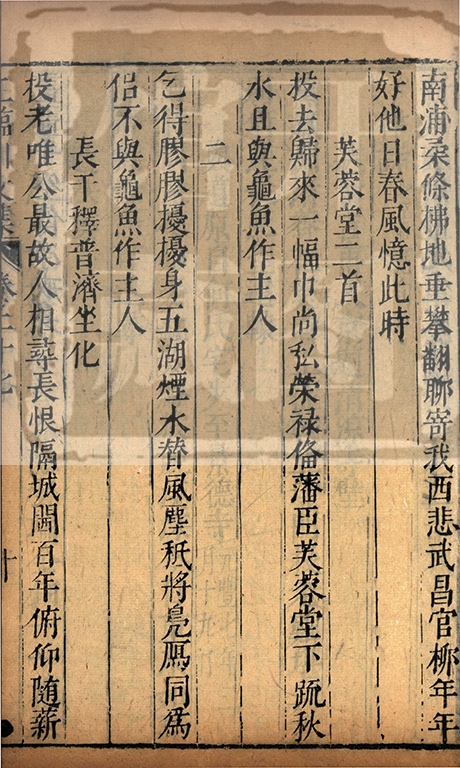 南浦柔條拂地垂攀翻聊寄我西悲武昌官柳年年
好他日春風憶此時
芙蓉堂二首
投去歸來一幅巾尚私榮禄備藩臣芙蓉堂下疏秋
水且與龜魚作主人
二
乞得膠膠擾擾身五湖煙水替風塵秪將鳧鴈同為
侣不與龜魚作主人
長干釋普濟坐化
投老唯公最故人相尋長恨隔城闉百年俯仰随薪
臨川文集 卷二十七 十